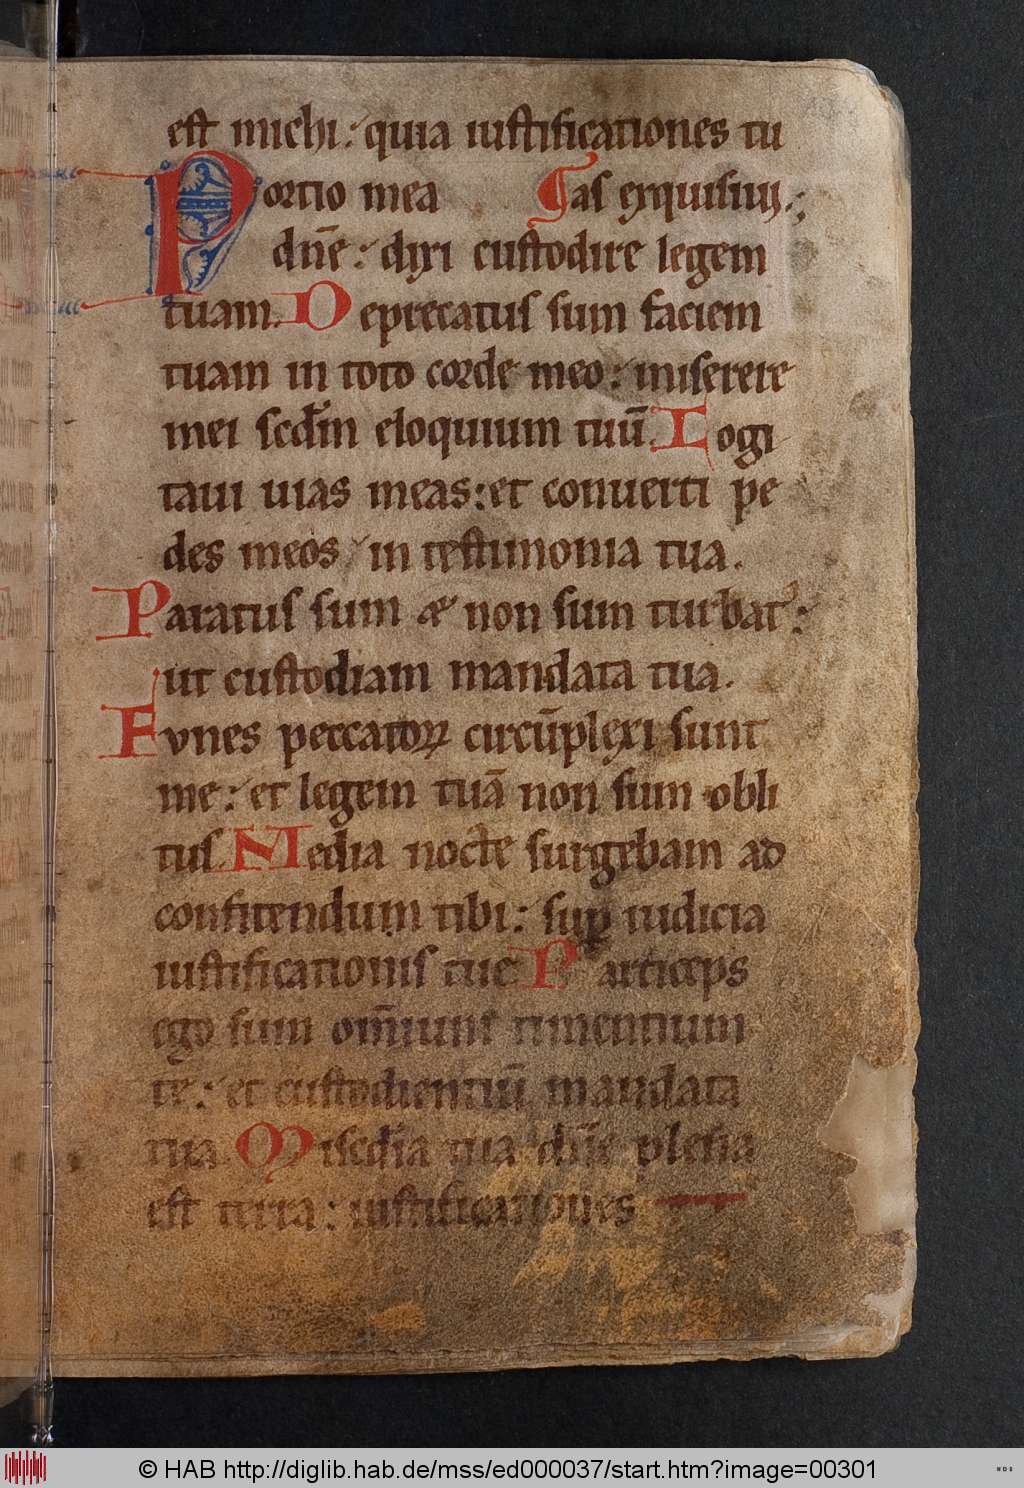 est michi: quia iustificationes tu
Portio mea as exquisiui.;
dn̄e: dixi custodire legem
tuam. Deprecatus sum faciem
tuam in toto corde meo: miserere
mei scd̄m eloquium tuū. Cogi
taui uias meas: et conuerti pe
des meos in testimonia tua.
Paratus sum & non sum turbat᷒:
ut custodiam mandata tua.
Funes peccatoꝝ circūplexi sunt
me: et legem tuā non sum obli
tus. Media nocte surgebam ad
confitendum tibi: suꝑ iudicia
iustificationis tue. Particeps
ego sum om̄ium timentium
te: et custodientiū mandata
tua. Miscd̄ia tua dn̄e plena
est terra: iustificationes
© HAB http://diglib.hab.de/mss/ed000037/start.htm?image=00301